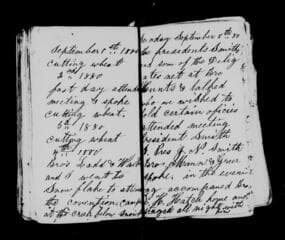 September 1st 1880
cutting wheat
2nd 1880
fast day attended
meeting & spoke
cutting wheat.
3rd 1880
cutting wheat
4th 1880
Bros Ladd &
and I went to
Snow flake to attend
the convention camped
at the creek below Snow
Sunday September 5th 80
the presidents Smith
and som of the Deleg
ates met at Bro
Hunts & talked
who we wished to
hold certain offices
attended meeting
President Smith
& Bro J. N. Smith
Bros Mann &
spoke, in the evening
accompanied Bro.
H. Hatch home and
staged all night with